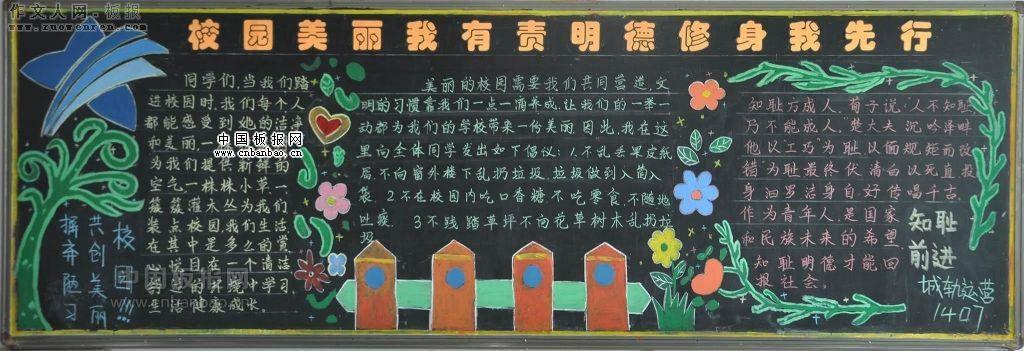 作文人网·板报
www.zuowenren.com
校园美丽我有责明德修身我先行
同学们,当我们踏
进校园时,我们每个人
都能感受到她的洁净
和美丽,一
为我们提供新鲜的
空气一株株小草一
簇簇灌木丛为我们
装点校园,我们生活
在其中是多么的赏
悦目在一个清洁
的环境中学习,
生活健康成长。
中国板报网
www.cnbanbao.cn
美丽的校园需要我们共同营造,文
明的习惯靠我们一点一滴养成,让我们的一举一
动都为我们的学校带来一份美丽.因此,我在这
里向全体同学发出如下倡议:1.不乱丢果皮纸
屑不向窗外楼下乱扔垃圾,垃圾做到入筒入
袋.2.不在校园内吃口香糖不吃零食,不随地
吐痰. 3.不践踏草坪不向花草树木乱扔垃
圾
知耻方成人,荀子说:"人不知耻
乃不能成人".楚大夫沉吟泽畔
他以"工巧"为耻以"偭规矩而改
错"为耻最终伏清白以死直投
身汨罗洁身自好传唱千古.
作为青年人,是国家
和民族未来的希望
知耻明德才能回
报社会。
知耻
前进
城轨运营
1407
校园!!!
共创美丽
摒弃陋习
中国板报网
www.cnbanbao.cn